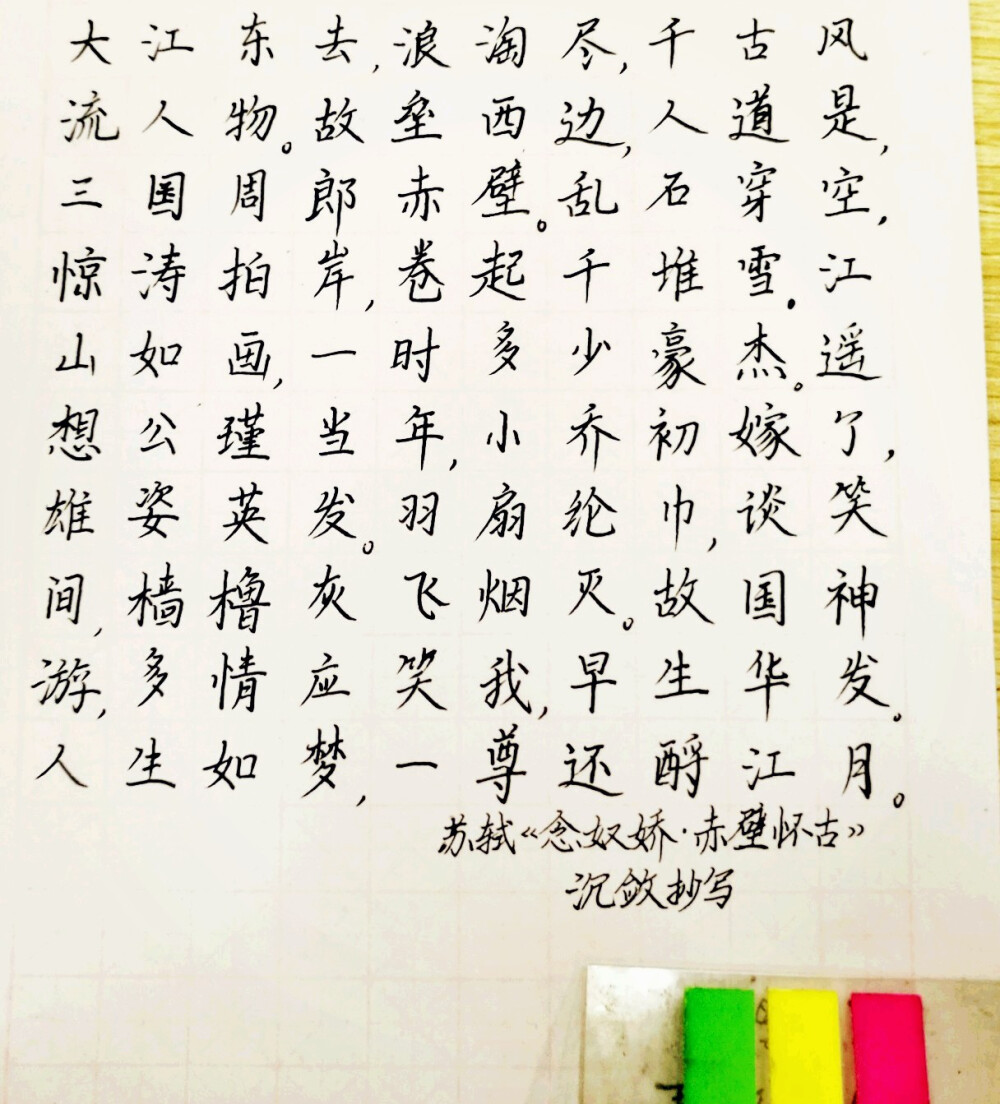 大江东去,浪淘尽,千古风
流人物。故垒西边,人道是,
三国周郎赤壁。乱石穿空,
惊涛拍岸,卷起千堆雪。江
山如画,一时多少豪杰。遥
想公瑾当年,小乔初嫁了,
雄姿英发。羽扇纶巾,谈笑
间,樯橹灰飞烟灭。故国神
游,多情应笑我,早生华发。
人生如梦,一尊还酹江月。
苏轼《念奴娇·赤壁怀古》
沉敛抄写